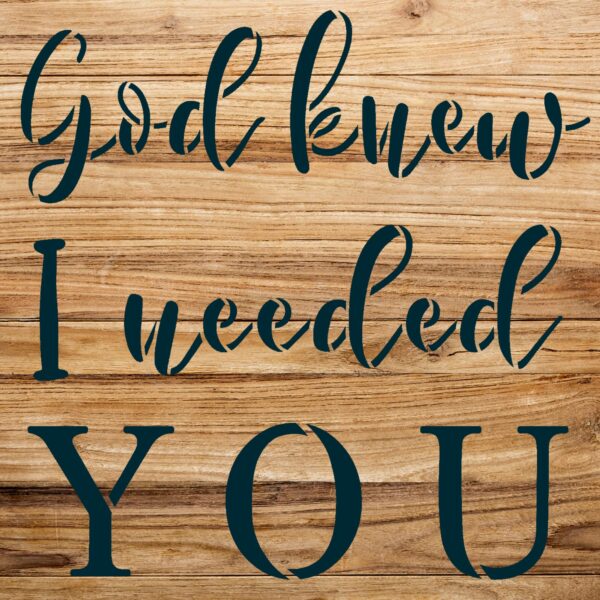 God knew
I needed
YOU